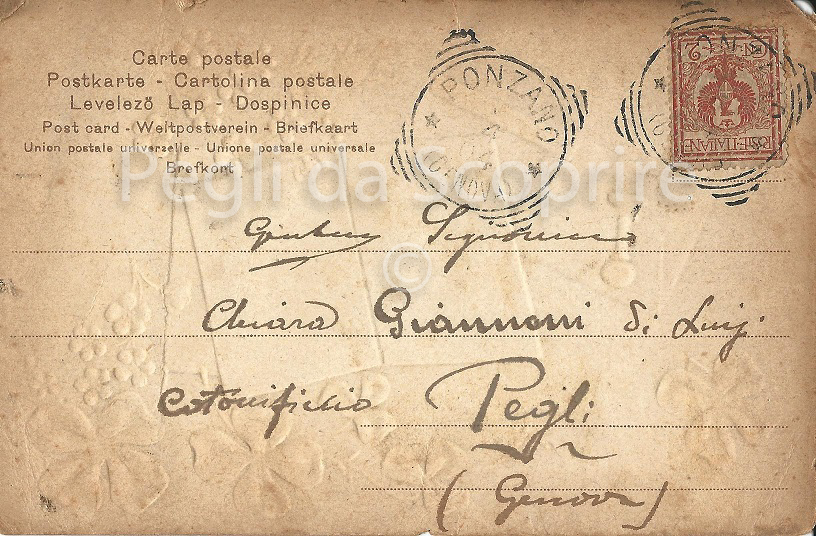 Carte postale
Postkarte - Cartolina postale
Levelezö Lap - Dospinice
Post card - Weltpostverein - Briefkaart
Union postale universelle - Unione postale universale
Brefkort
PONZANO
POSTE-ITALIANE
Pegli da Scoprire
©
Signorina
Chiara Giannoni di Luigi
Cotonificio Pegli
(Genova)